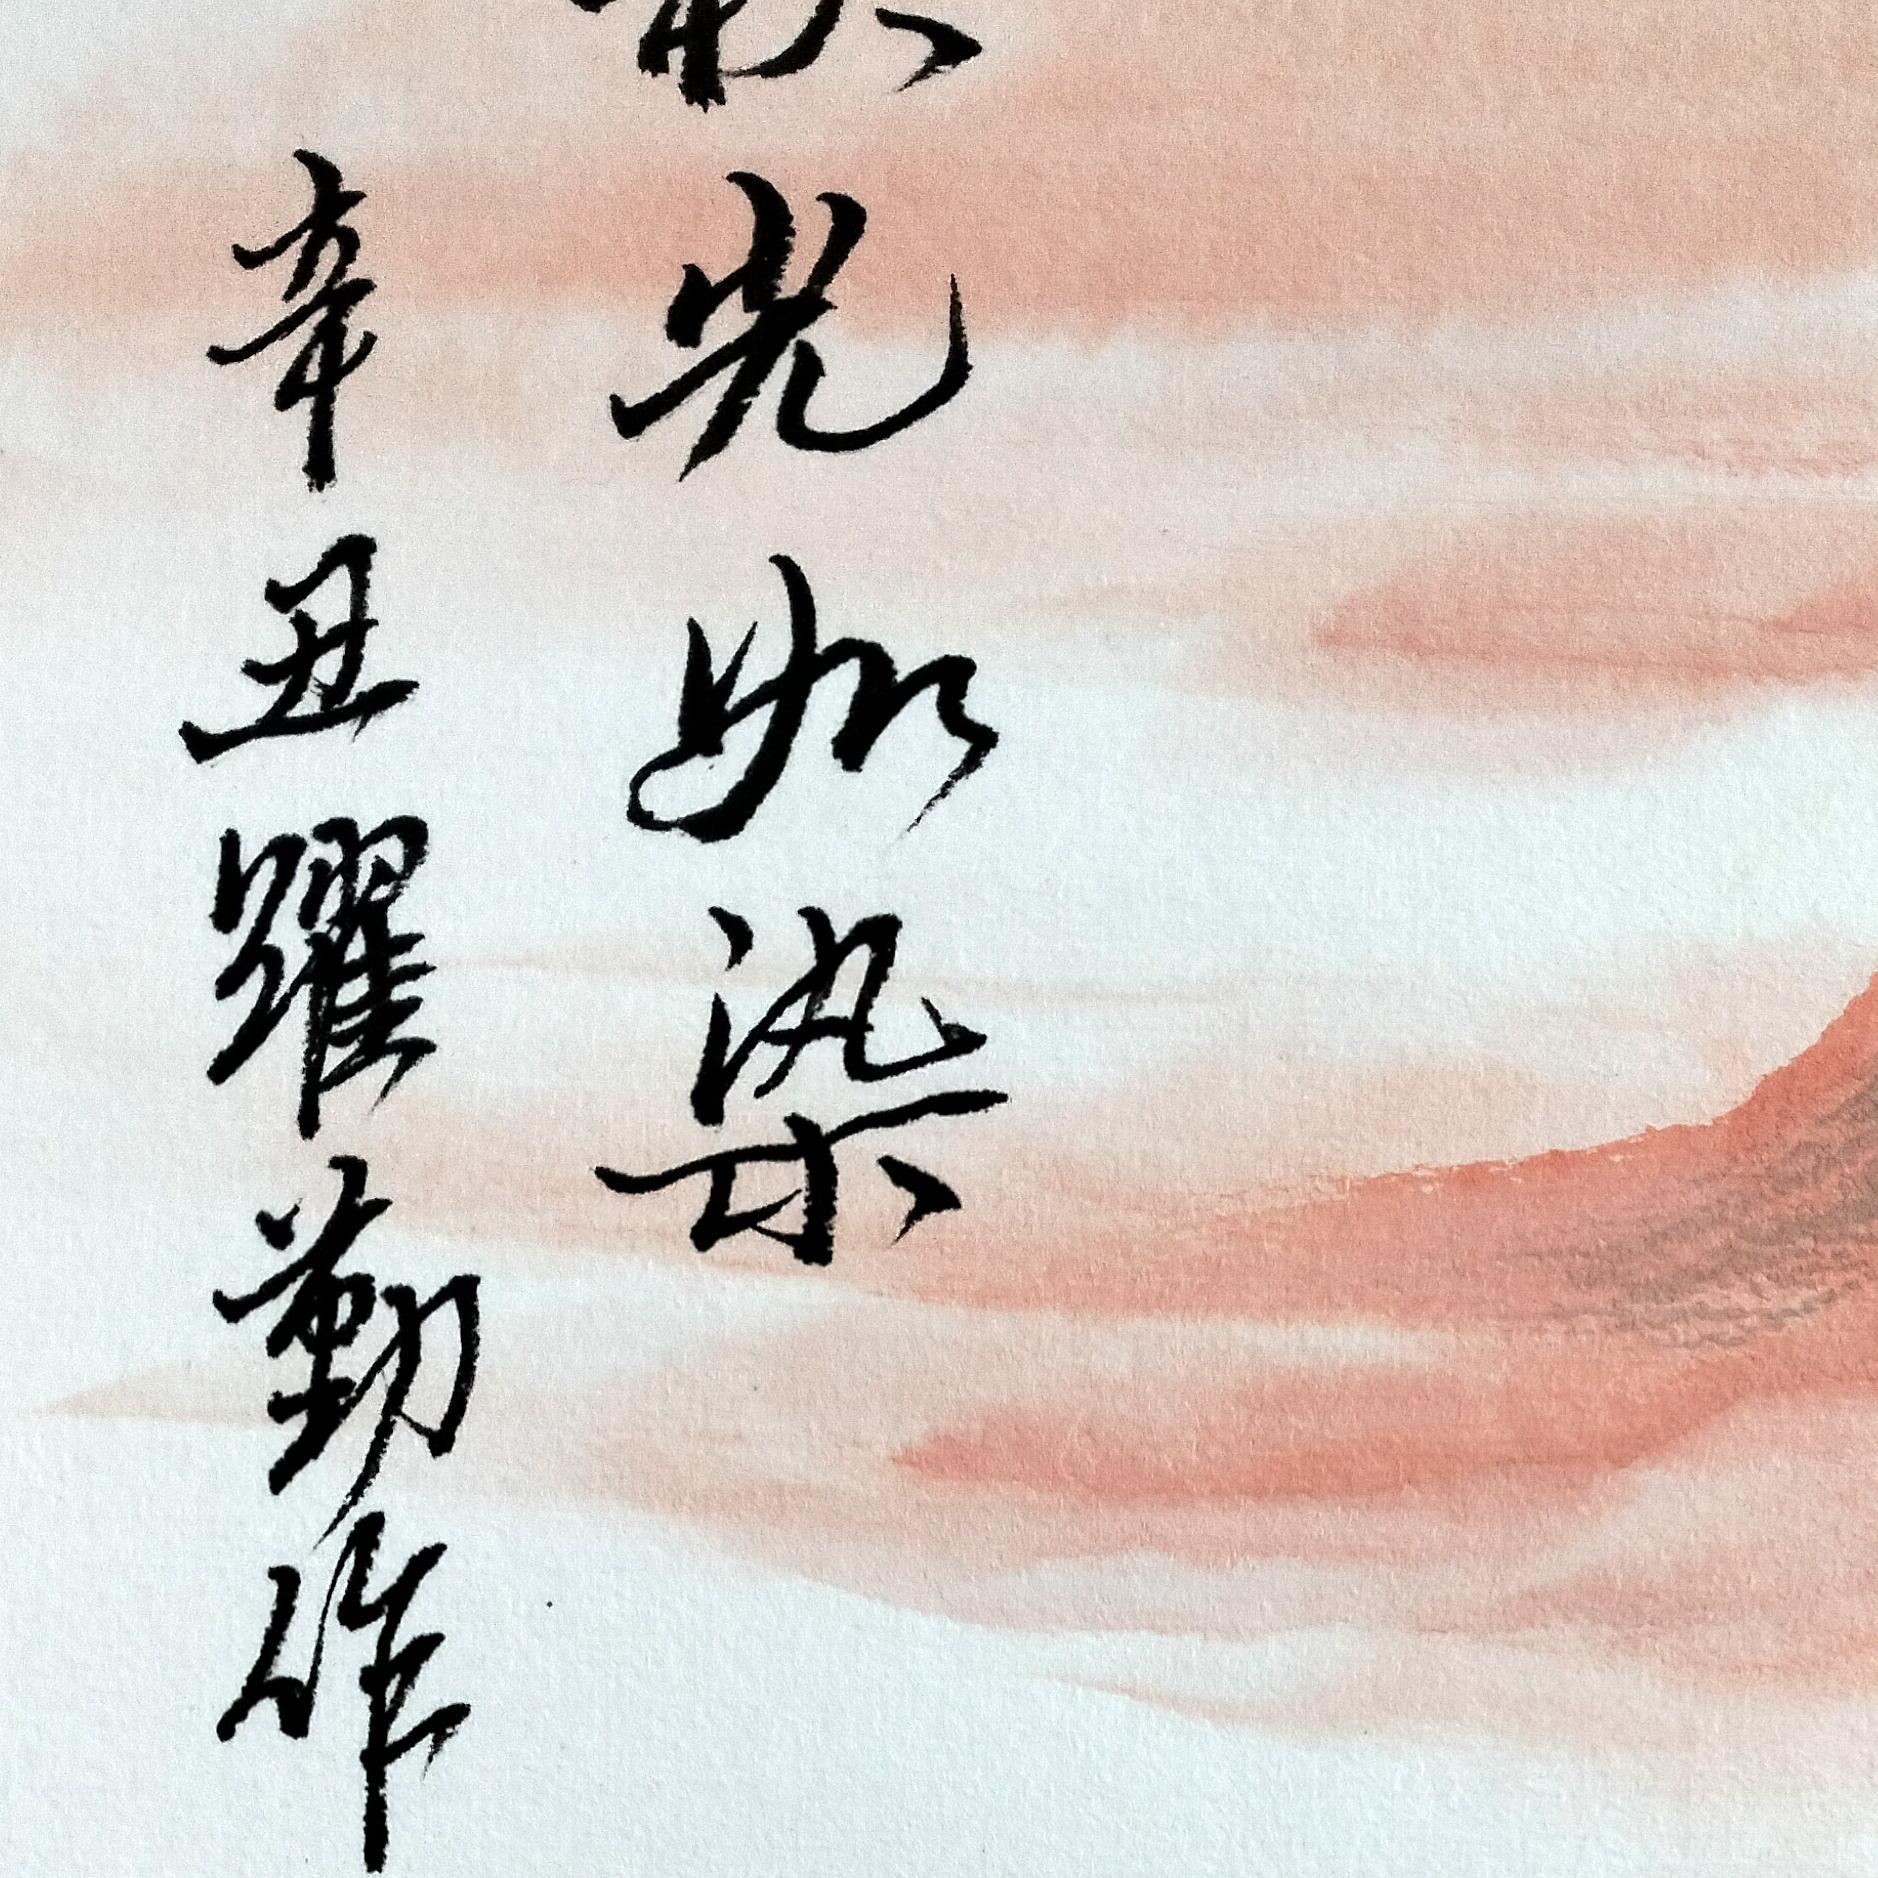 光如染
辛丑躍勤作